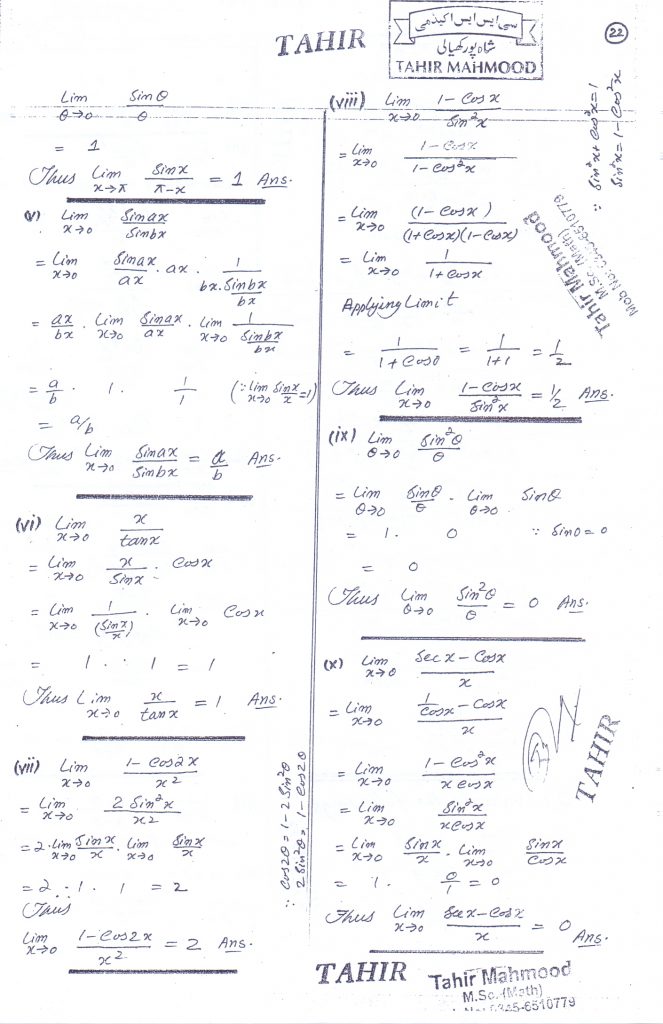 TAHIR
سی ایس ایس اکیڈمی
شاہ پور کھیالی
TAHIR MAHMOOD
22
Lim θ→0 Sinθ/θ
= 1
Thus Lim x→π Sinx/(π-x) = 1 Ans.
(v) Lim x→0 Sinax/Sinbx
= Lim x→0 Sinax/ax . ax . 1/(bx. Sinbx/bx)
= ax/bx . Lim x→0 Sinax/ax . Lim x→0 1/(Sinbx/bx)
= a/b . 1. 1/1 (∵ Lim x→0 Sinx/x = 1)
= a/b
Thus Lim x→0 Sinax/Sinbx = a/b Ans.
(vi) Lim x→0 x/tanx
= Lim x→0 x/Sinx . Cosx
= Lim x→0 1/(Sinx/x) . Lim x→0 Cosx
= 1 . 1 = 1
Thus Lim x→0 x/tanx = 1 Ans.
(vii) Lim x→0 (1-Cos2x)/x²
= Lim x→0 2Sin²x/x²
= 2. Lim x→0 Sinx/x . Lim x→0 Sinx/x
= 2 . 1 . 1 = 2
Thus
Lim x→0 (1-Cos2x)/x² = 2 Ans.
∵ Cos2θ = 1-2Sin²θ
2Sin²θ = 1-Cos2θ
(viii) Lim x→0 (1-Cosx)/Sin²x
= Lim x→0 (1-Cosx)/(1-Cos²x)
= Lim x→0 (1-Cosx)/((1+Cosx)(1-Cosx))
= Lim x→0 1/(1+Cosx)
Applying Limit
= 1/(1+Cos0) = 1/(1+1) = 1/2
Thus Lim x→0 (1-Cosx)/Sin²x = 1/2 Ans.
∵ Sin²x + Cos²x = 1
Sin²x = 1-Cos²x
Tahir Mahmood
M.Sc. (Math)
Mob No: 0345-6510779
(ix) Lim θ→0 Sin²θ/θ
= Lim θ→0 Sinθ/θ . Lim θ→0 Sinθ
= 1. 0 ∵ Sin0 = 0
= 0
Thus Lim θ→0 Sin²θ/θ = 0 Ans.
(x) Lim x→0 (Secx-Cosx)/x
= Lim x→0 (1/Cosx - Cosx)/x
= Lim x→0 (1-Cos²x)/(x Cosx)
= Lim x→0 Sin²x/(x Cosx)
= Lim x→0 Sinx/x . Lim x→0 Sinx/Cosx
= 1. 0/1 = 0
Thus Lim x→0 (Secx-Cosx)/x = 0 Ans.
TAHIR
TAHIR
Tahir Mahmood
M.Sc. (Math)
No: 0345-6510779